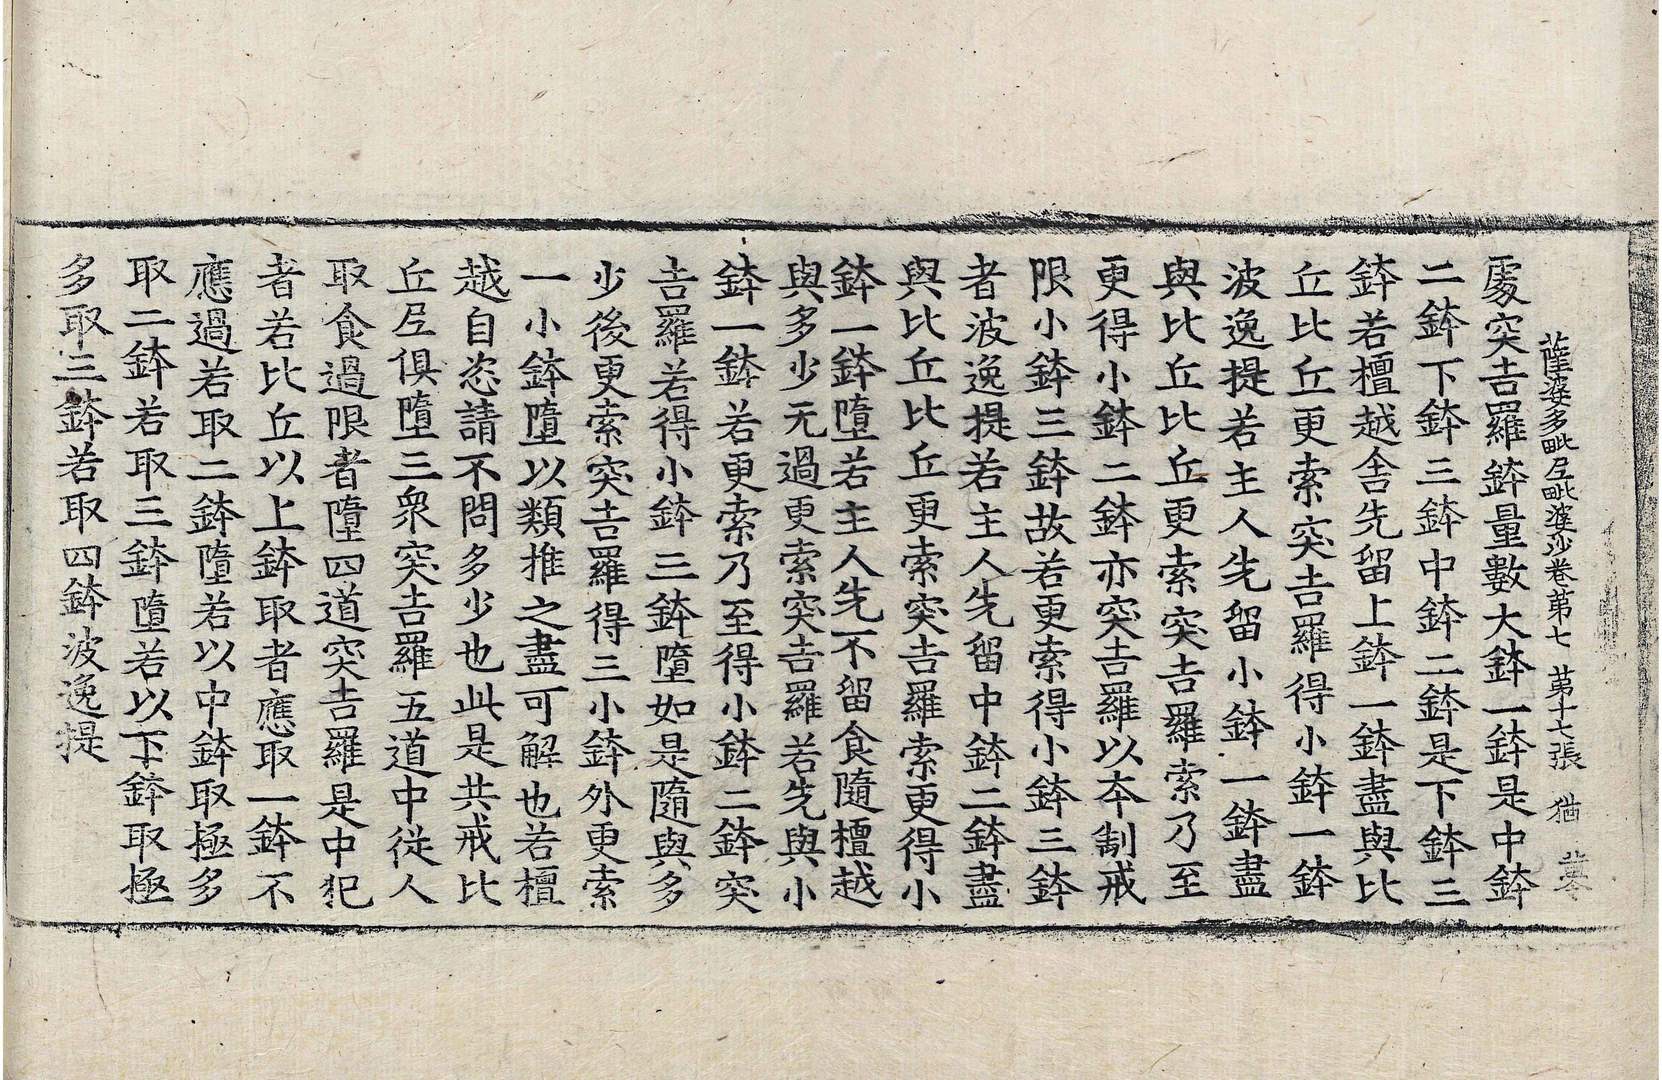 薩婆多毗尼毗婆沙卷苐七 苐十七張 猶
處突吉羅鉢量數大鉢一鉢是中鉢
二鉢下鉢三鉢中鉢二鉢是下鉢三
鉢若檀越舍先留上鉢一鉢盡與比
丘比丘更索突吉羅得小鉢一鉢
波逸提若主人先留小鉢一鉢盡
與比丘比丘更索突吉羅索乃至
更得小鉢二鉢亦突吉羅以本制戒
限小鉢三鉢故若更索得小鉢三鉢
者波逸提若主人先留中鉢二鉢盡
與比丘比丘更索突吉羅索更得小
鉢一鉢墮若主人先不留食隨檀越
與多少无過更索突吉羅若先與小
鉢一鉢若更索乃至得小鉢二鉢突
吉羅若得小鉢三鉢墮如是隨與多
少後更索突吉羅得三小鉢外更索
一小鉢墮以類推之盡可解也若檀
越自恣請不問多少也此是共戒比
丘尼俱墮三衆突吉羅五道中從人
取食過限者墮四道突吉羅是中犯
者若比丘以上鉢取者應取一鉢不
應過若取二鉢墮若以中鉢取極多
取二鉢若取三鉢墮若以下鉢取極
多取三鉢若取四鉢波逸提